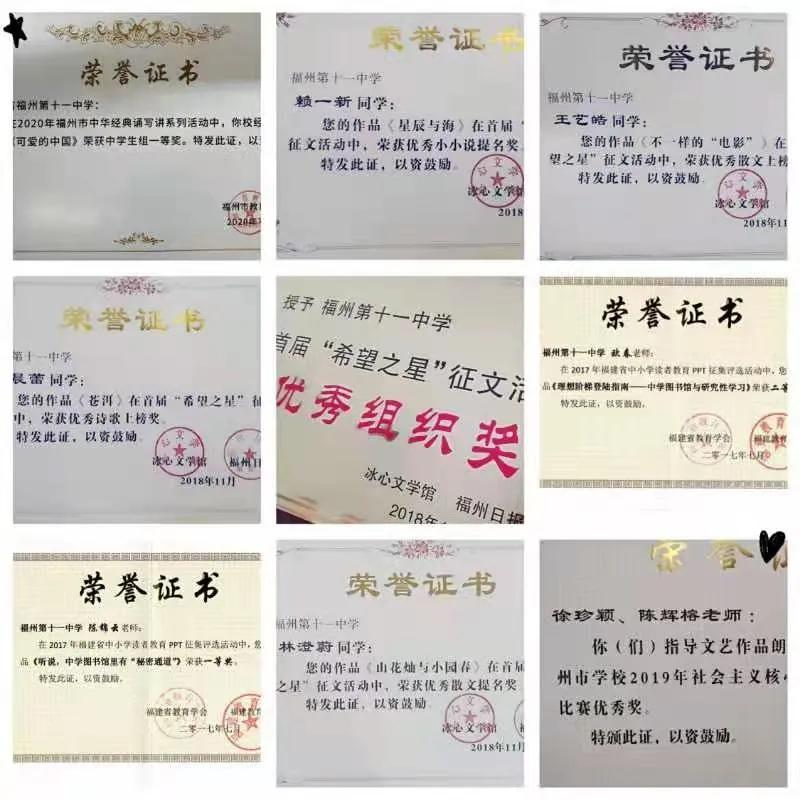 荣誉证书
福州第十一中学:
在2020年福州市中华经典诵写讲系列活动中,你校经
《可爱的中国》荣获中学生组一等奖。特发此证,以
福州市教
2020年
荣誉证书
福州第十一中学
赖一新同学:
您的作品《星辰与海》在首届“
征文活动中,荣获优秀小小说提名奖
特发此证,以资鼓励。
冰心文学馆
2018
荣誉证书
福州第十一中学:
王艺皓同学:
您的作品《不一样的“电影”》在
望之星”征文活动中,荣获优秀散文上榜
特发此证,以资鼓励。
冰心文学馆
2018年11
荣誉证书
福州第十一中学
晨蕾同学:
您的作品《苍洱》在首届“希望之星”征
中,荣获优秀诗歌上榜奖。
特发此证,以资鼓励。
冰心文学馆 福州日
2018年11月
授予 福州第十一中学
首届“希望之星”征文活
优秀组织奖
冰心文学馆 福州日报
2018年
荣誉证书
福州第十一中学 欧春老师:
在2017年福建省中小学读者教育PPT征集评选活动中,您
品《理想阶梯登陆指南——中学图书馆与研究性学习》荣获二等
特发此证,以资鼓励。
福建省教育学会 福建教育
二〇一七年七月
荣誉证书
福州第十一中学 陈锦云老师:
在2017年福建省中小学读者教育PPT征集评选活动中,您
品《听说,中学图书馆里有“秘密通道”》荣获一等奖。
特发此证,以资鼓励。
福建省教育学会 福建教
二〇一七年七月
荣誉证书
福州第十一中学:
林澄蔚同学:
您的作品《山花灿与小园春》在首届
之星”征文活动中,荣获优秀散文提名奖
特发此证,以资鼓励。
冰心文学馆
2018年11月
荣誉证
徐珍颖、陈辉榕老师:
你(们)指导文艺作品朗
州市学校2019年社会主义核心
比赛优秀奖。
特颁此证,以资鼓励。